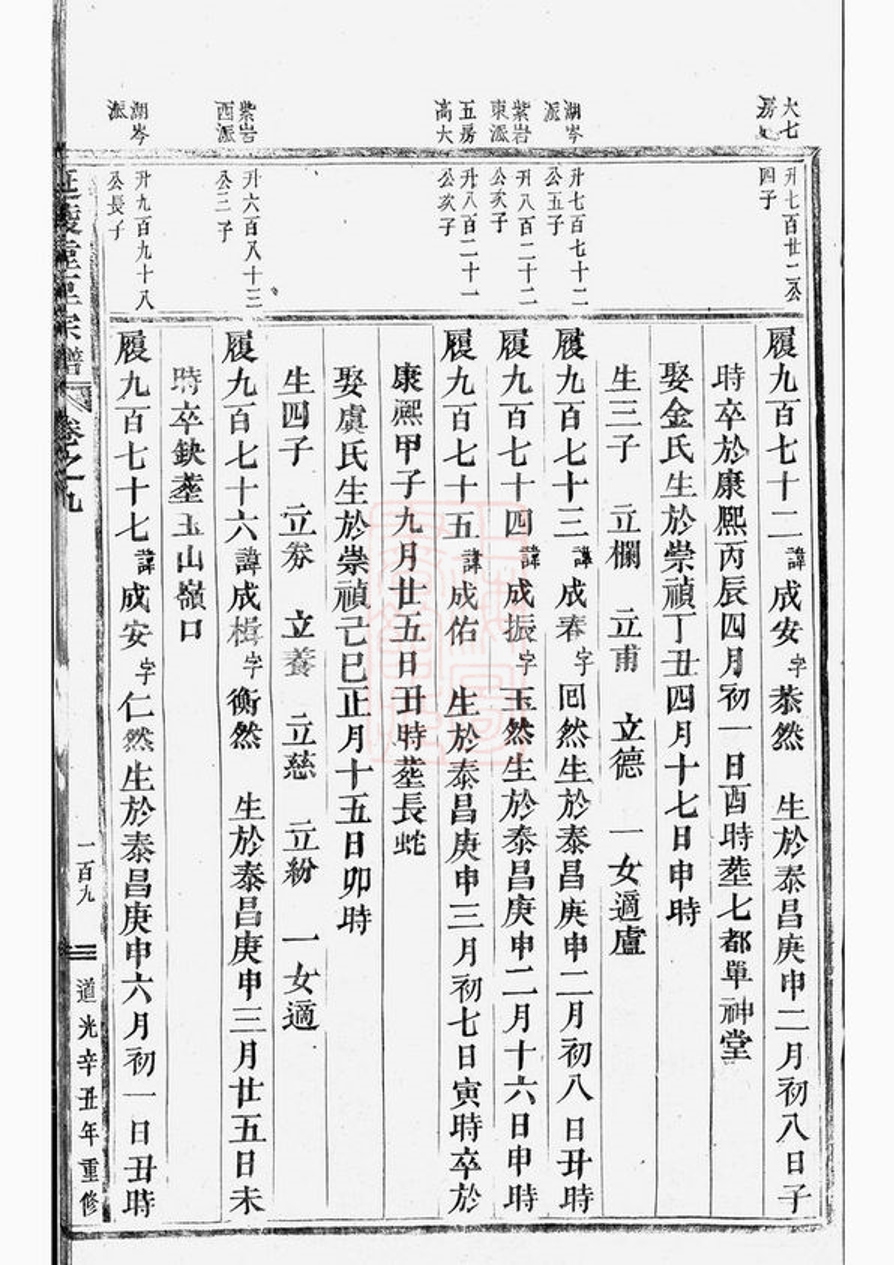 大七
房
升七百廿二公
四子
履九百七十二諱成安字恭然　生於泰昌庚申二月初八日子
時卒於康熙丙辰四月初一日酉時塟七都單神堂
娶金氏生於崇禎丁丑四月十七日申時
生三子　立欄　立甫　立德　一女適盧
湖岑
派
升七百七十二
公五子
履九百七十三諱成春字囘然生於泰昌庚申二月初八日丑時
紫岩
東派
升八百二十二
公次子
履九百七十四諱成振字玉然生於泰昌庚申二月十六日申時
五房
高大
升八百二十一
公次子
履九百七十五諱成佑　生於泰昌庚申三月初七日寅時卒於
康熙甲子九月廿五日丑時塟長蛇
娶虞氏生於崇禎己巳正月十五日卯時
生四子　立券　立養　立慈　立紛　一女適
紫岩
西派
升六百八十三
公三子
履九百七十六諱成楫字衡然　生於泰昌庚申三月廿五日未
時卒缺塟玉山嶺口
湖岑
派
升九百九十八
公長子
履九百七十七諱成安字仁然生於泰昌庚申六月初一日丑時
宗譜　卷之九
一百九
道光辛丑年重修